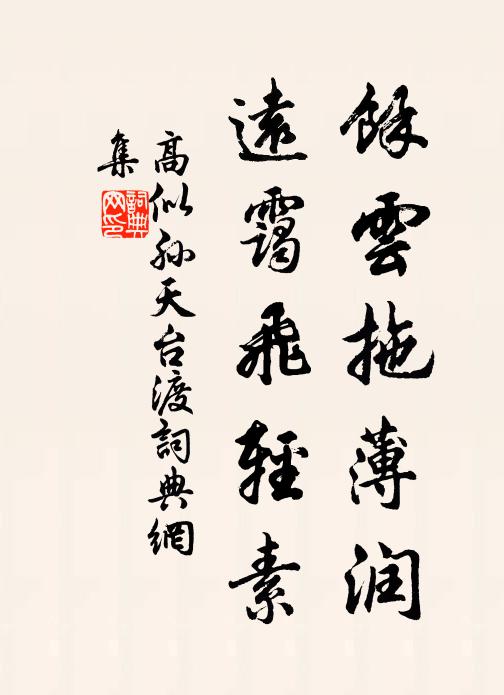 餘雲拖薄润
遠靄飛輕素
高似孫天台渡詞典網
集
詞典
网印